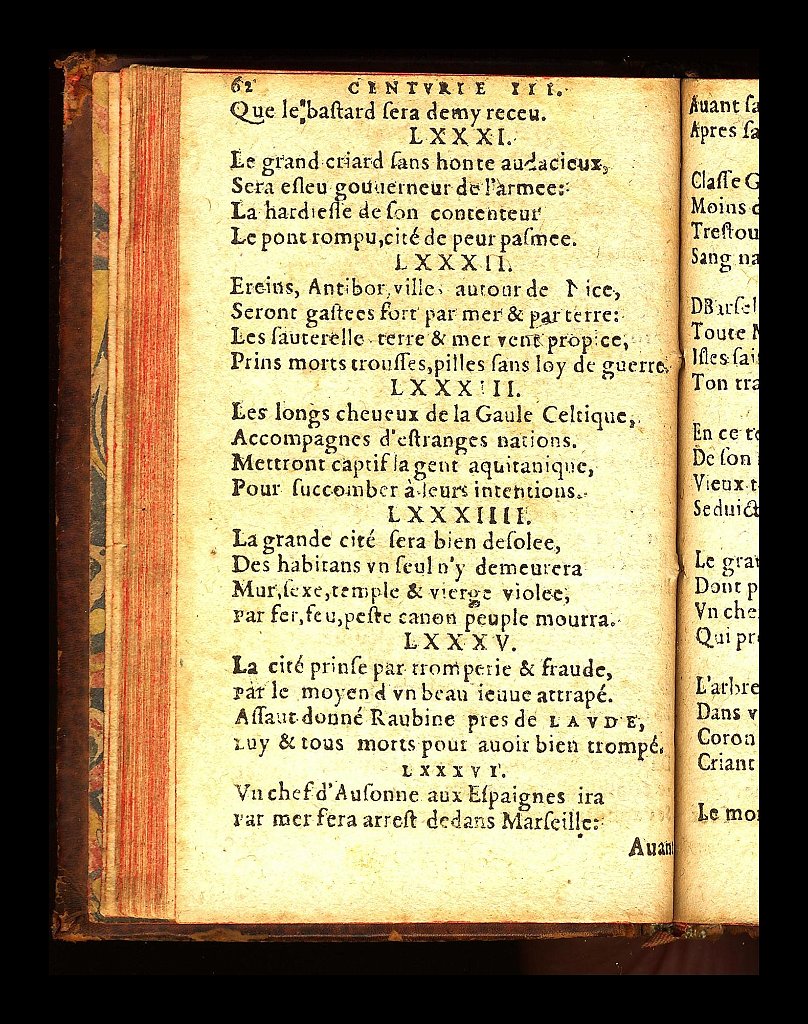 62 CENTVRIE III.
Que le baſtard ſera demy receu.
LXXXI.
Le grand criard ſans honte audacieux,
Sera eſleu gouuerneur de l'armee:
La hardieſſe de ſon contenteur
Le pont rompu, cité de peur paſmee.
LXXXII.
Ereins, Antibor, villes autour de Nice,
Seront gaſtees fort par mer & par terre:
Les ſauterelle terre & mer vent propice,
Prins morts trouſſes, pilles ſans loy de guerre.
LXXXIII.
Les longs cheueux de la Gaule Celtique,
Accompagnes d'eſtranges nations.
Mettront captif la gent aquitanique,
Pour ſuccomber à leurs intentions.
LXXXIIII.
La grande cité ſera bien deſolee,
Des habitans vn ſeul n'y demeurera
Mur, ſexe, temple & vierge violee,
Par fer, feu, peſte canon peuple mourra.
LXXXV.
La cité prinſe par tromperie & fraude,
Par le moyen d'vn beau ieune attrapé.
Aſſaut donné Raubine pres de LAVDE,
Luy & tous morts pour auoir bien trompé.
LXXXVI.
Vn chef d'Auſonne aux Eſpaignes ira
Par mer fera arreſt dedans Marſeille:
Auant
Auant ſa
Apres ſa
Claſſe G
Moins
Treſtou
Sang na
Toute
Iſles ſai
Ton tra
En ce te
De ſon
Vieux
Seduict
Le gra
Dont p
Vn che
Qui pr
L'arbre
Dans v
Coron
Criant
Le mo